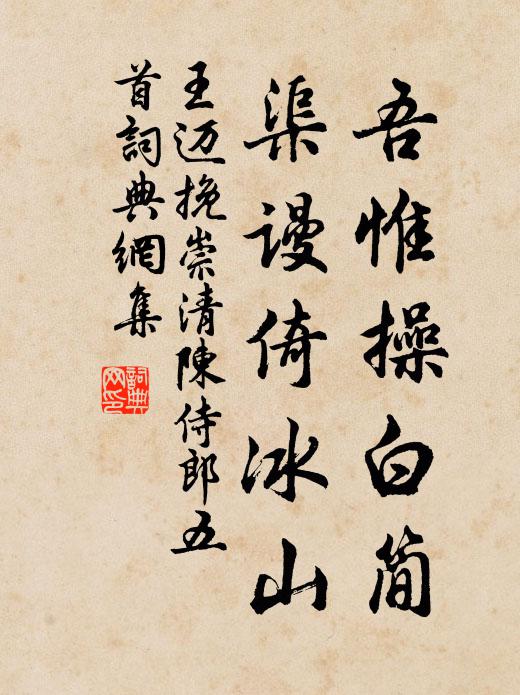 吾惟操白简
渠谩倚冰山
王迈挽崇清陳侍郎五
首詞典網集
詞典
网印